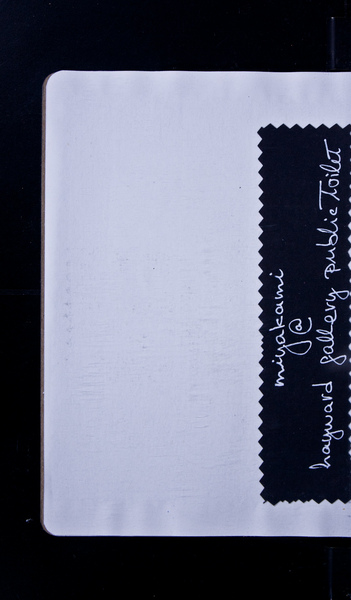 miyakami
@
hayward gallery public Toilet